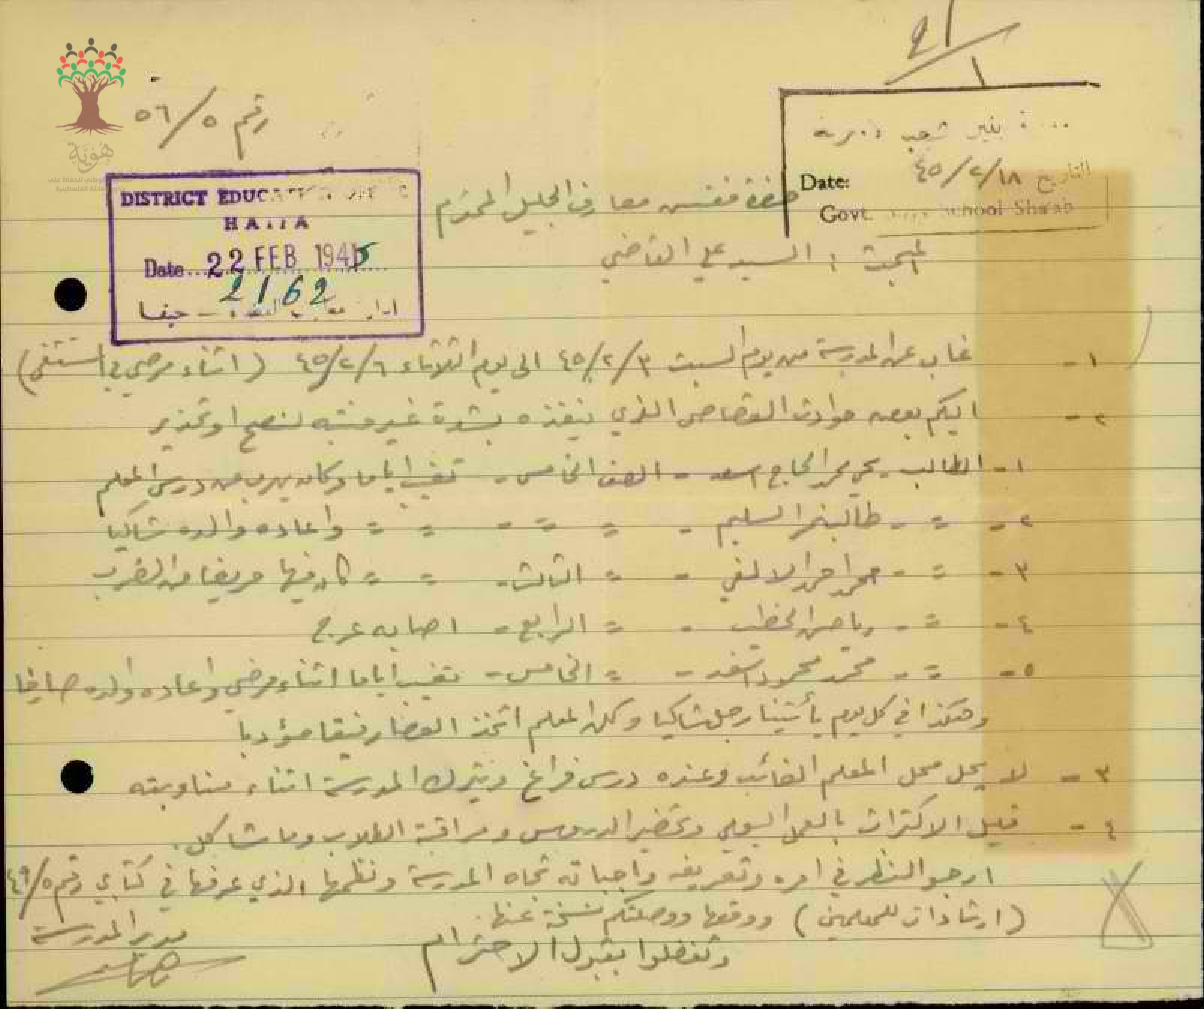 ٢١
١
مدرسة بنين شعب الاميرية
Date: ٤٥/٢/١٨ التاريخ
Govt. School Sha'ab
رقم ٥٦/٥
هوية
DISTRICT EDUCATION OFFICE
HAIFA
Date 22 FEB 1945
2162
حيفا
حضرة مفتش معارف الجليل المحترم
المبحث : السيد علي القاضي
١- غاب عن المدرسة من يوم السبت ٤٥/٢/٣ الى يوم الثلاثاء ٤٥/٢/٦ (اثناء مرضي في المستشفى)
٢- اليكم بعض حوادث القصاص الذي ينفذه بشدة غير منتبه لنصح او تحذير
١- الطالب يحيى محمد الحاج اسعد - الصف الخامس - تغيب اياما وكان يهرب من درس المعلم
٢- = - طالب نمر السليم - = = - = = واعاده والده شاكيا
٣- = - محمد احمد - = الثالث - = = كان فيها مريضا من الضرب
٤- = - الخطيب - = الرابع - اصابه عرج
٥- = - محمد محمود اسعد - = الخامس - تغيب اياما اثناء مرضي واعاده والده
وهكذا في كل يوم يأتينا رجل شاكيا وكان المعلم اتخذ العصا رفيقا مؤدبا
٣- لا يحل محل المعلم الغائب وعنده درس فراغ ويترك المدرسة اثناء مناوبته
٤- قليل الاكتراث بالعمل اليومي وتحضير الدروس ومراقبة الطلاب وما شاكل.
ارجو النظر في امره وتعريفه واجباته تجاه المدرسة ونظمها الذي عرفها في كتابي رقم ٤٩/٥
(ارشادات للمعلمين) ووقعها ووصلتكم نسخة عنها.
وتفضلوا بقبول الاحترام
مدير المدرسة